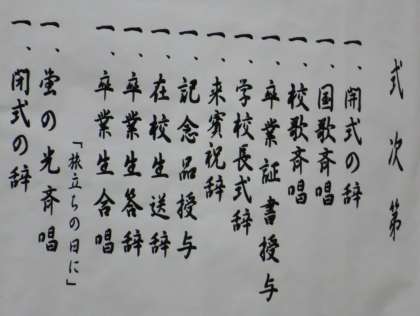 式次第
一、開式の辞
一、国歌斉唱
一、校歌斉唱
一、卒業証書授与
一、学校長式辞
一、来賓祝辞
一、記念品授与
一、在校生送辞
一、卒業生答辞
一、卒業生合唱
「旅立ちの日に」
一、蛍の光斉唱
一、閉式の辞